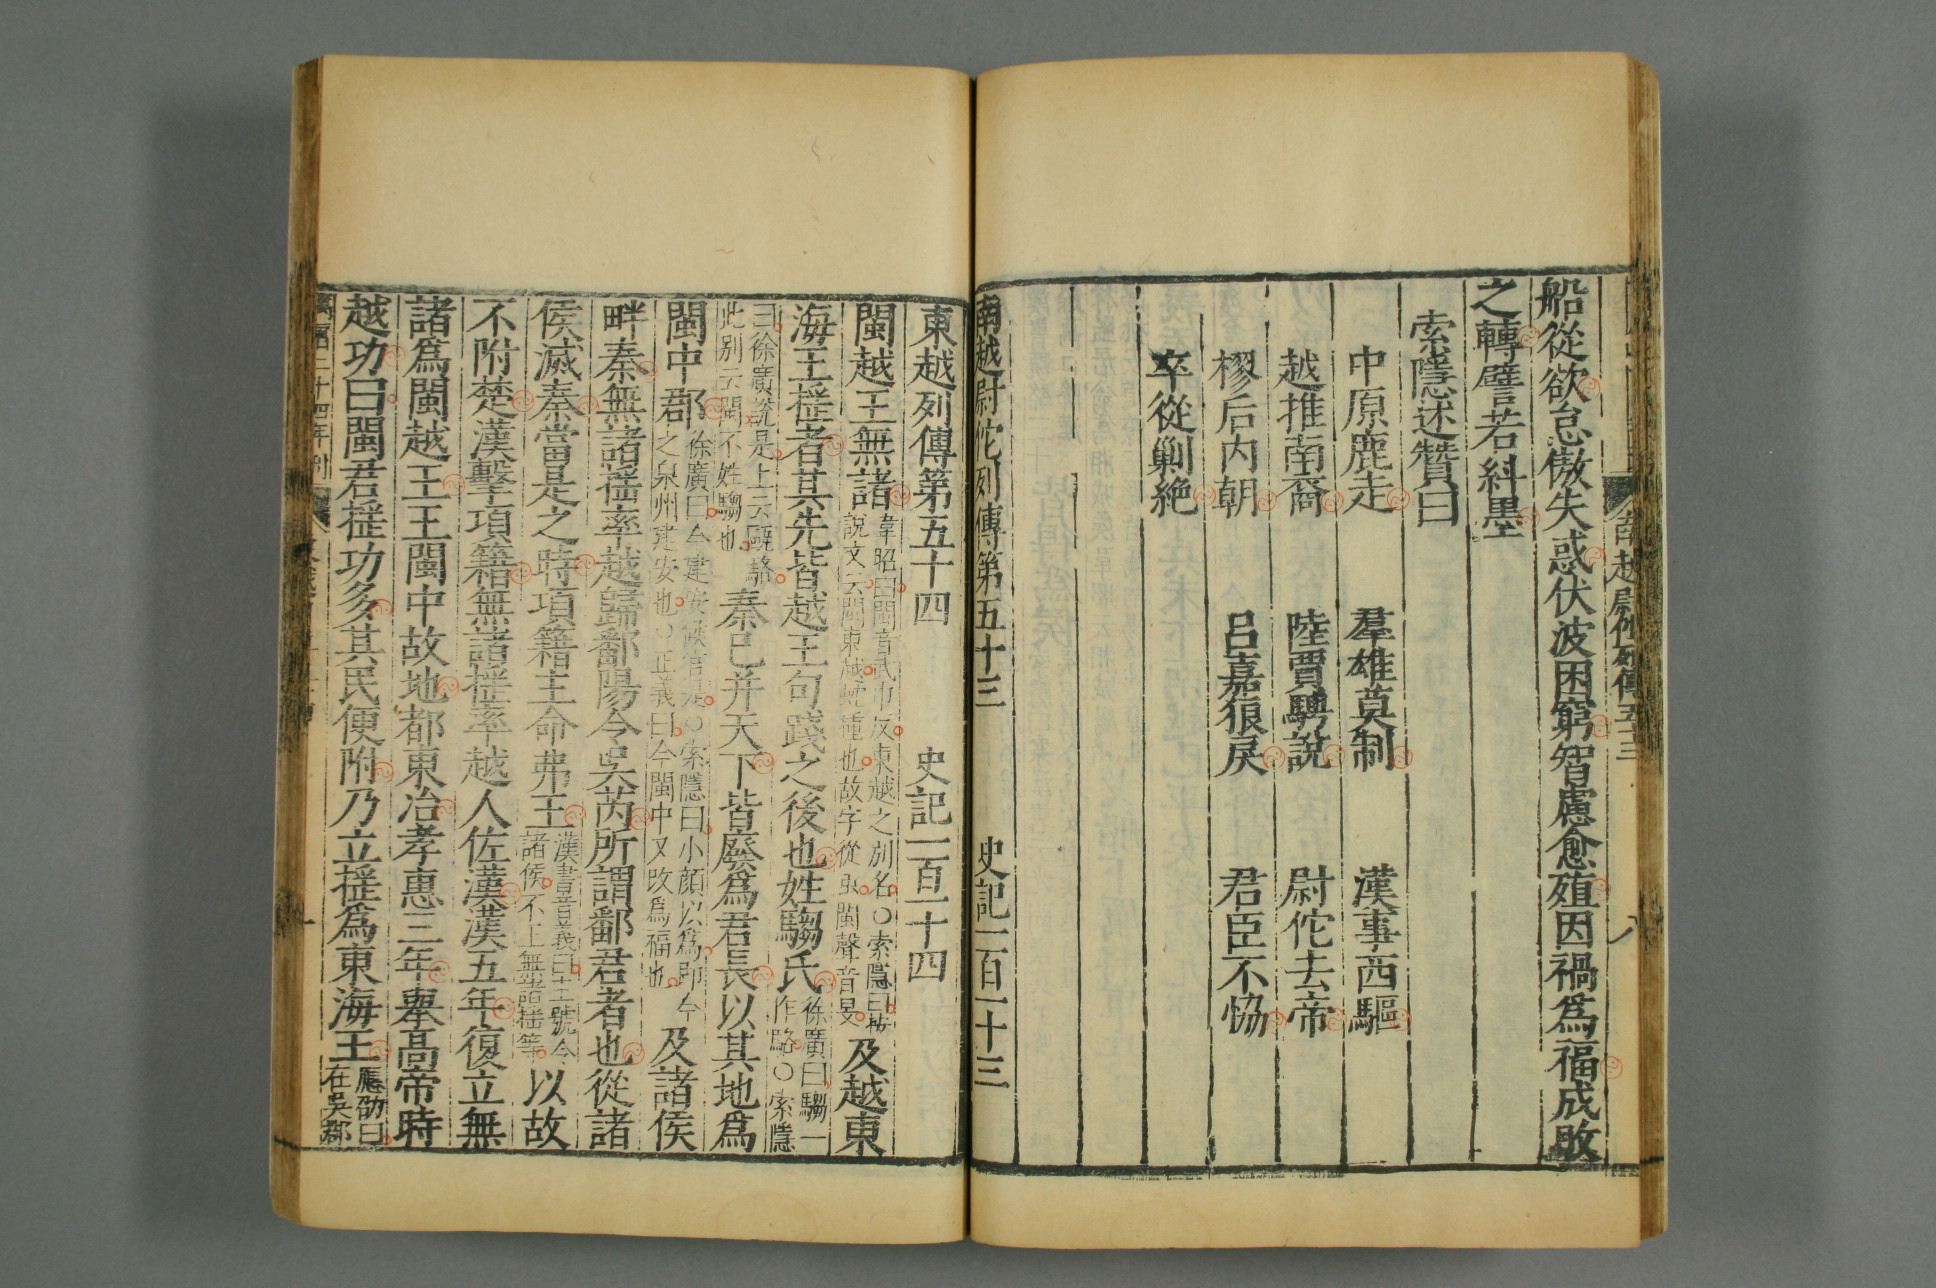 南越尉佗列傳五十三
八
船從欲怠傲失惑伏波困窮智慮愈殖因禍為福成敗
之轉譬若糾墨
索隱述贊曰
中原鹿走 羣雄莫制 漢事西驅
越推南裔 陸賈騁說 尉佗去帝
樛后內朝 呂嘉狼戾 君臣不協
卒從剿絕
南越尉佗列傳第五十三 史記一百一十三
東越列傳第五十四 史記一百一十四
閩越王無諸
韋昭曰閩音武巾反東越之別名○索隱曰按
說文云閩東越蛇種也故字從虫閩聲音旻
及越東
海王搖者其先皆越王句踐之後也姓騶氏
徐廣曰騶一
作駱○索隱
曰徐廣說是上云駱駱
此別云閩不姓騶也
秦已并天下皆廢為君長以其地為
閩中郡
徐廣曰今建安侯官是○索隱曰小顏以為即今
之泉州建安也○正義曰今閩中又改為福也
及諸侯
畔秦無諸搖率越歸鄱陽令吳芮所謂鄱君者也從諸
侯滅秦當是之時項籍主命弗王
漢書音義曰主號令
諸侯不上無諸搖等
以故
不附楚漢擊項籍無諸搖率越人佐漢漢五年復立無
諸為閩越王王閩中故地都東冶孝惠三年舉高帝時
越功曰閩君搖功多其民便附乃立搖為東海王
應劭曰
在吳郡
一